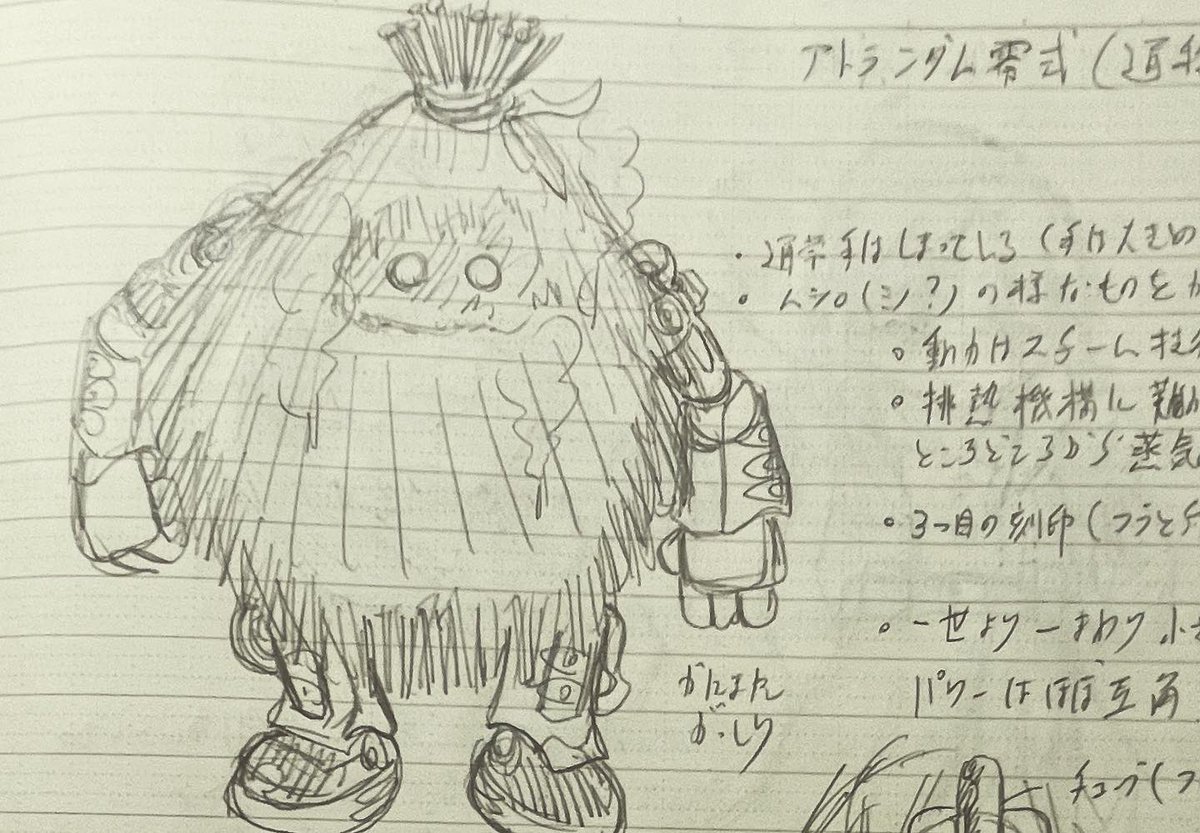 アトランダム零式(通称
・通常手はしまっている(手は大きめ
・ムシロ(ミノ?)の様なものをか
。動力はスチーム技
。排熱機構に難
ところどころから蒸気
。3つ目の刻印(フラとチ
。一世より一まわり小
パワーはほぼ互角
がにまた
がっしり
チューブ(フ